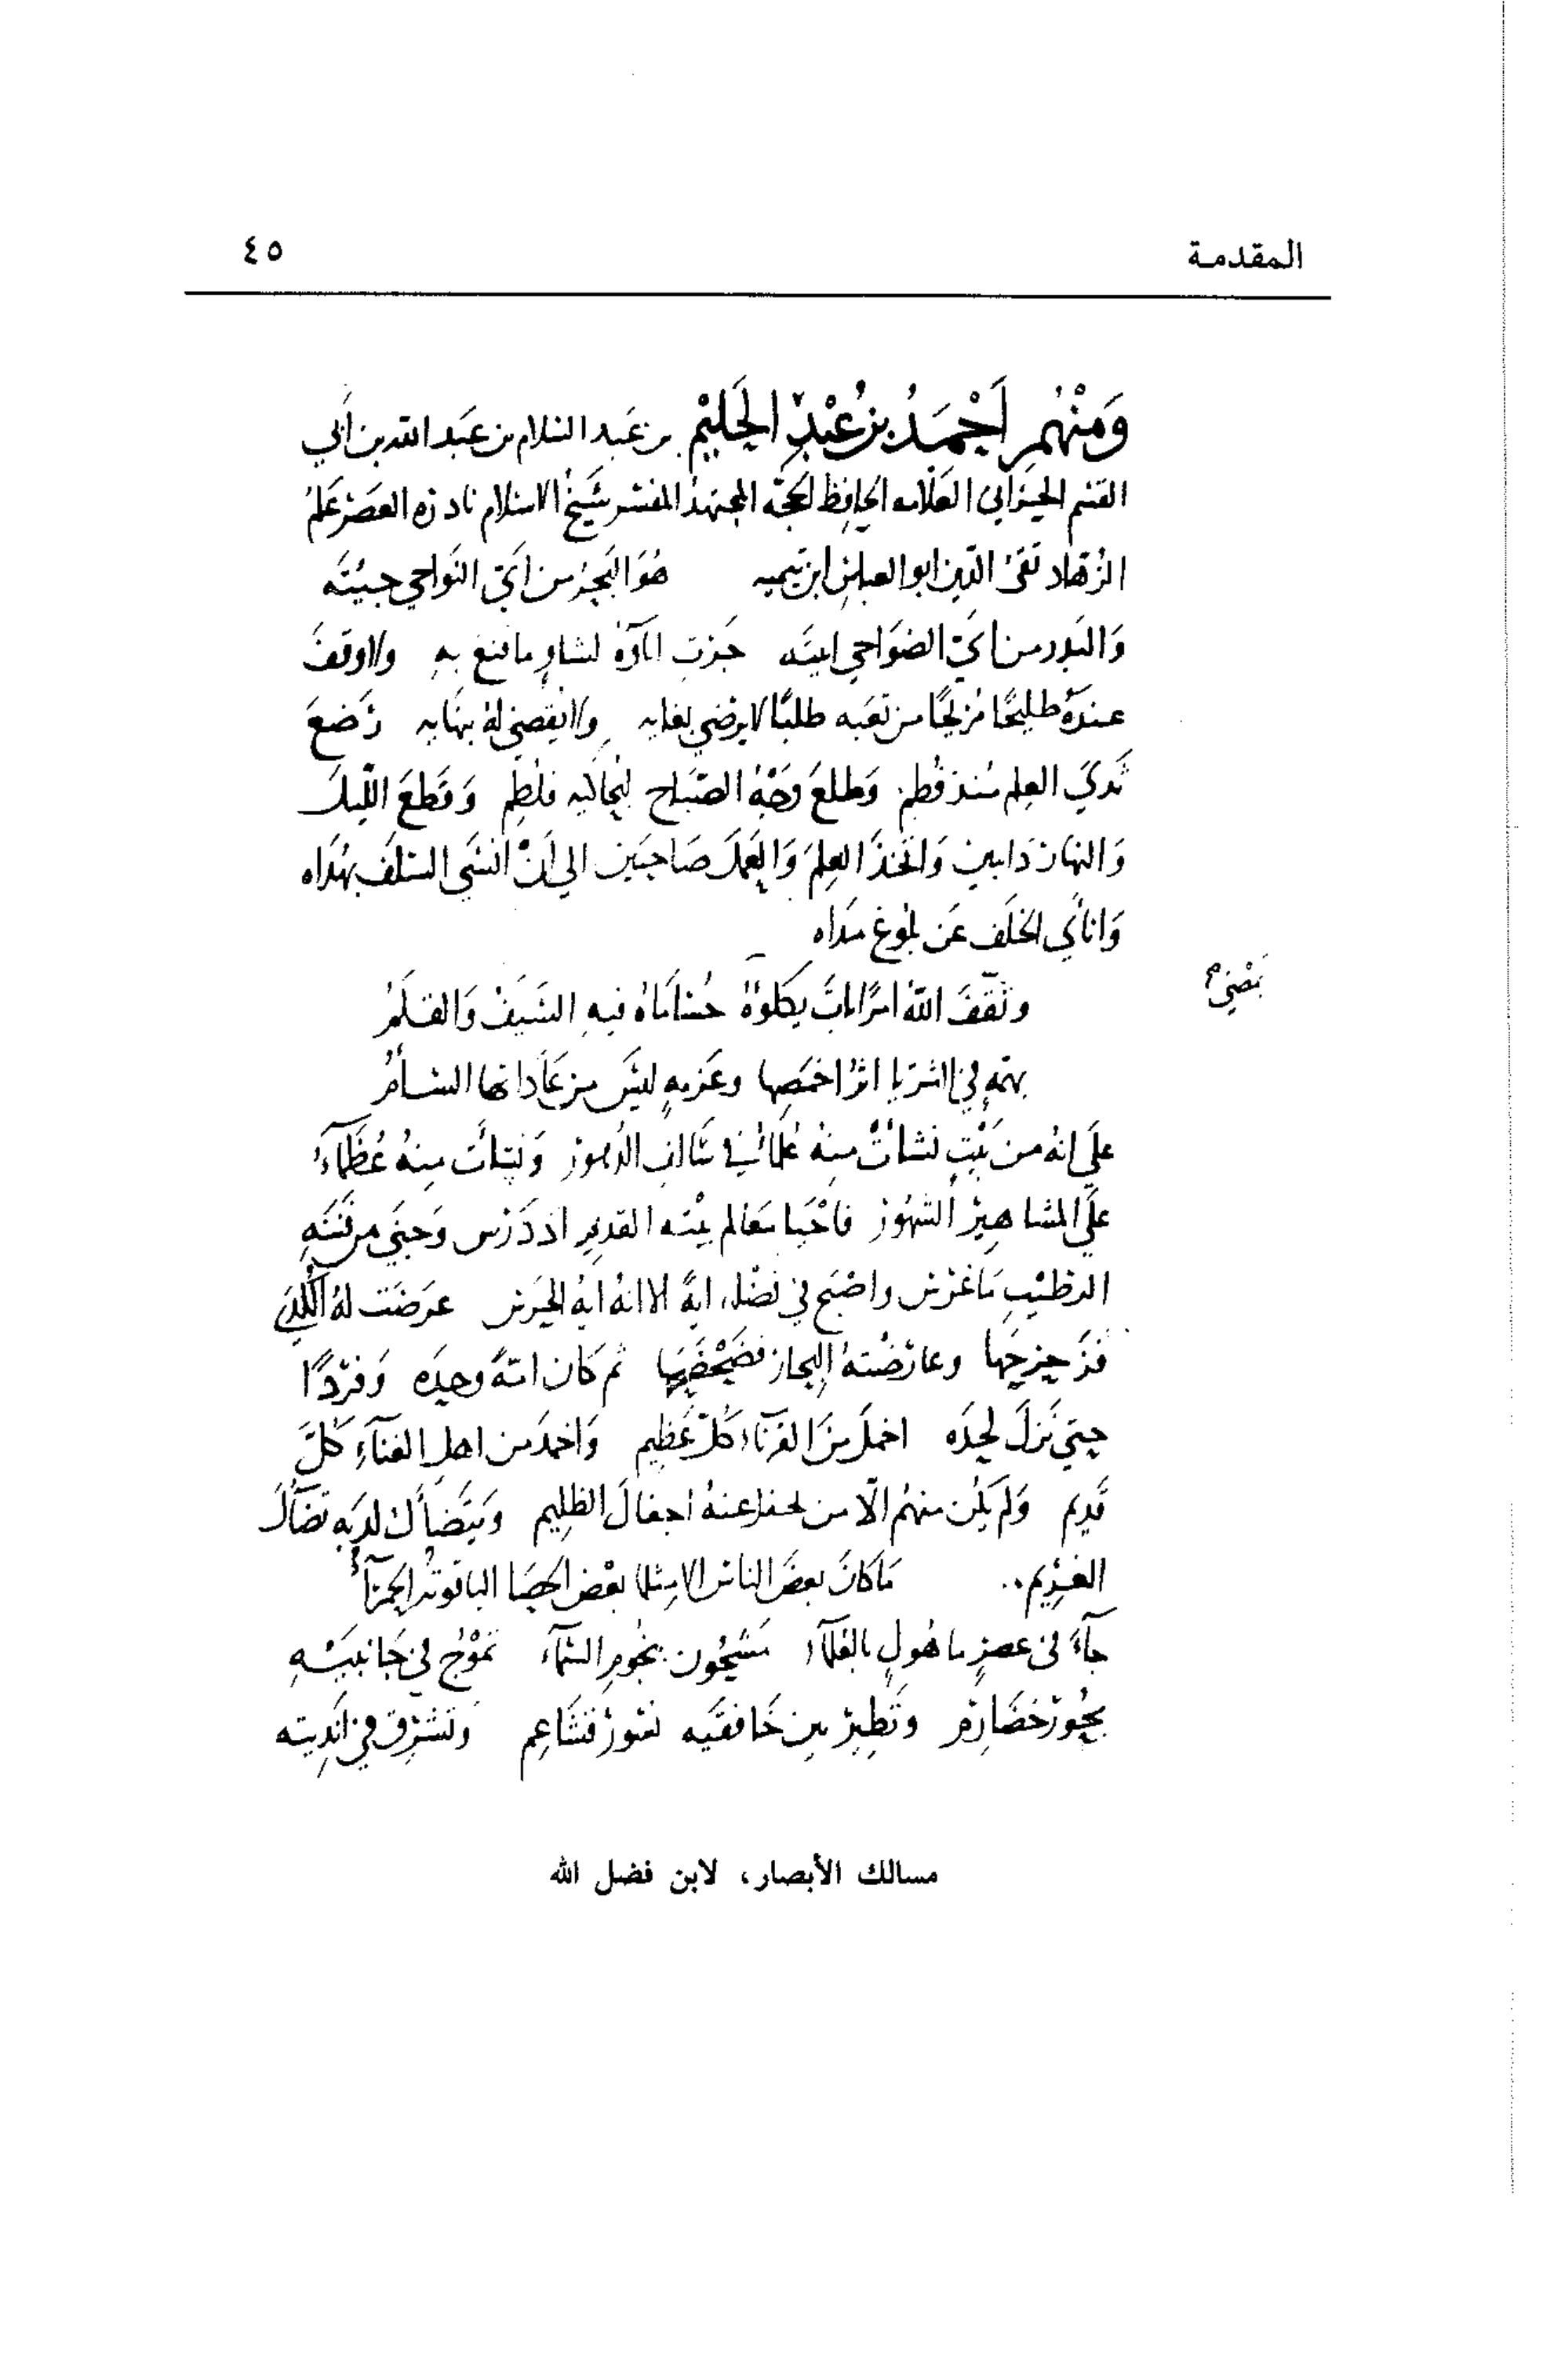 المقدمة
٤٥
وَمنْهُم أَحْمَدُ بنُ عَبْدِ الحَلِيْم بن عَبد السلام بن عَبد الله بن أَبي
القسم الحَرّاني العَلّامه الحافِظ الحجّه المجتهدُ المفسّر شَيخُ الاسلام نادرَه العَصر عَلمُ
الزّهّاد تَقيُّ الدّين ابو العباس ابن تَيميه هُوَ البَحرُ من أيّ النّواحي جيئتَه
وَالبَدر من ايّ الضوَاحي اتيتَه جَرَت اباؤهُ لشاوٍ ما قنع بهِ ولا وقفَ
عندَهُ طليحًا مُريحًا من تعَبه طلبًا لا يرضي بغايه ولا يُقضي لهُ بنهايه رَضعَ
ثَديَ العلم مُنذ فُطم وَطلعَ وَجهُ الصّبَاح ليُحاكيه فلُطِم وَقطعَ اللّيلَ
وَالنهارَ دَايبين وَاتخذَ العِلمَ وَالعَمَلَ صَاحبَين الي أَنْ انسَي السّلفَ بهُدَاه
وَانأي الخلَف عَن بلُوغ مدَاه
وثَقّفَ اللهُ امرًا باتَ يكلوهُ يَمضي حُسَامَاهُ فيهِ السَيفُ وَالقلَمُ
بهمّهٍ في الثريا اثرُ اخمَصِها وعَزمهٍ ليسَ من عَاداتها السأمُ
علَي انهُ من بَيتٍ نشأتْ منهُ عُلمَاءُ في سَالف الدّهور وَنشأت منهُ عُظَمَاءُ
علَي المشاهيرِ الشهُور فاحْيا مَعَالم بيْته القديم اذ دَرَس وَجنَي من فَنَنهِ
الرطيْبِ مَا غَرس واصْبَح في فضْله ايةً الا انهُ ايةُ الحَرس عرَضَت لهُ الكُدَي
فزَحزحَها وعارَضْتهُ البحار فضَحْضَحَها ثم كان امّةً وحدَه وَفرْدًا
حتي نَزلَ لحدَه اخملَ منَ القُرنَاء كلَّ عَظيم وَاخمدَ من اهل الفنَآءِ كلَّ
قَديم وَلم يكُن منهُم الّا من يجفلُ عنهُ اجفالَ الظليم وَيتَضاءَل لديهِ تضَآلَ
الغَريم..  مَا كانَ بعضُ الناس الا مثلما بعْض الحصَا الياقوتَهُ الحمرَآءُ
جآءَ في عصرٍ ماهُولٍ بالعُلمآء مَشحُونٍ بنجُوم السّمآء تَموْجُ في جَانبَيْهِ
بحُورٌ خضَارِم وتَطِيرُ بين خَافقَيه نسُورٌ قشَاعِم وتشرق في أنديته
مسالك الأبصار، لابن فضل الله